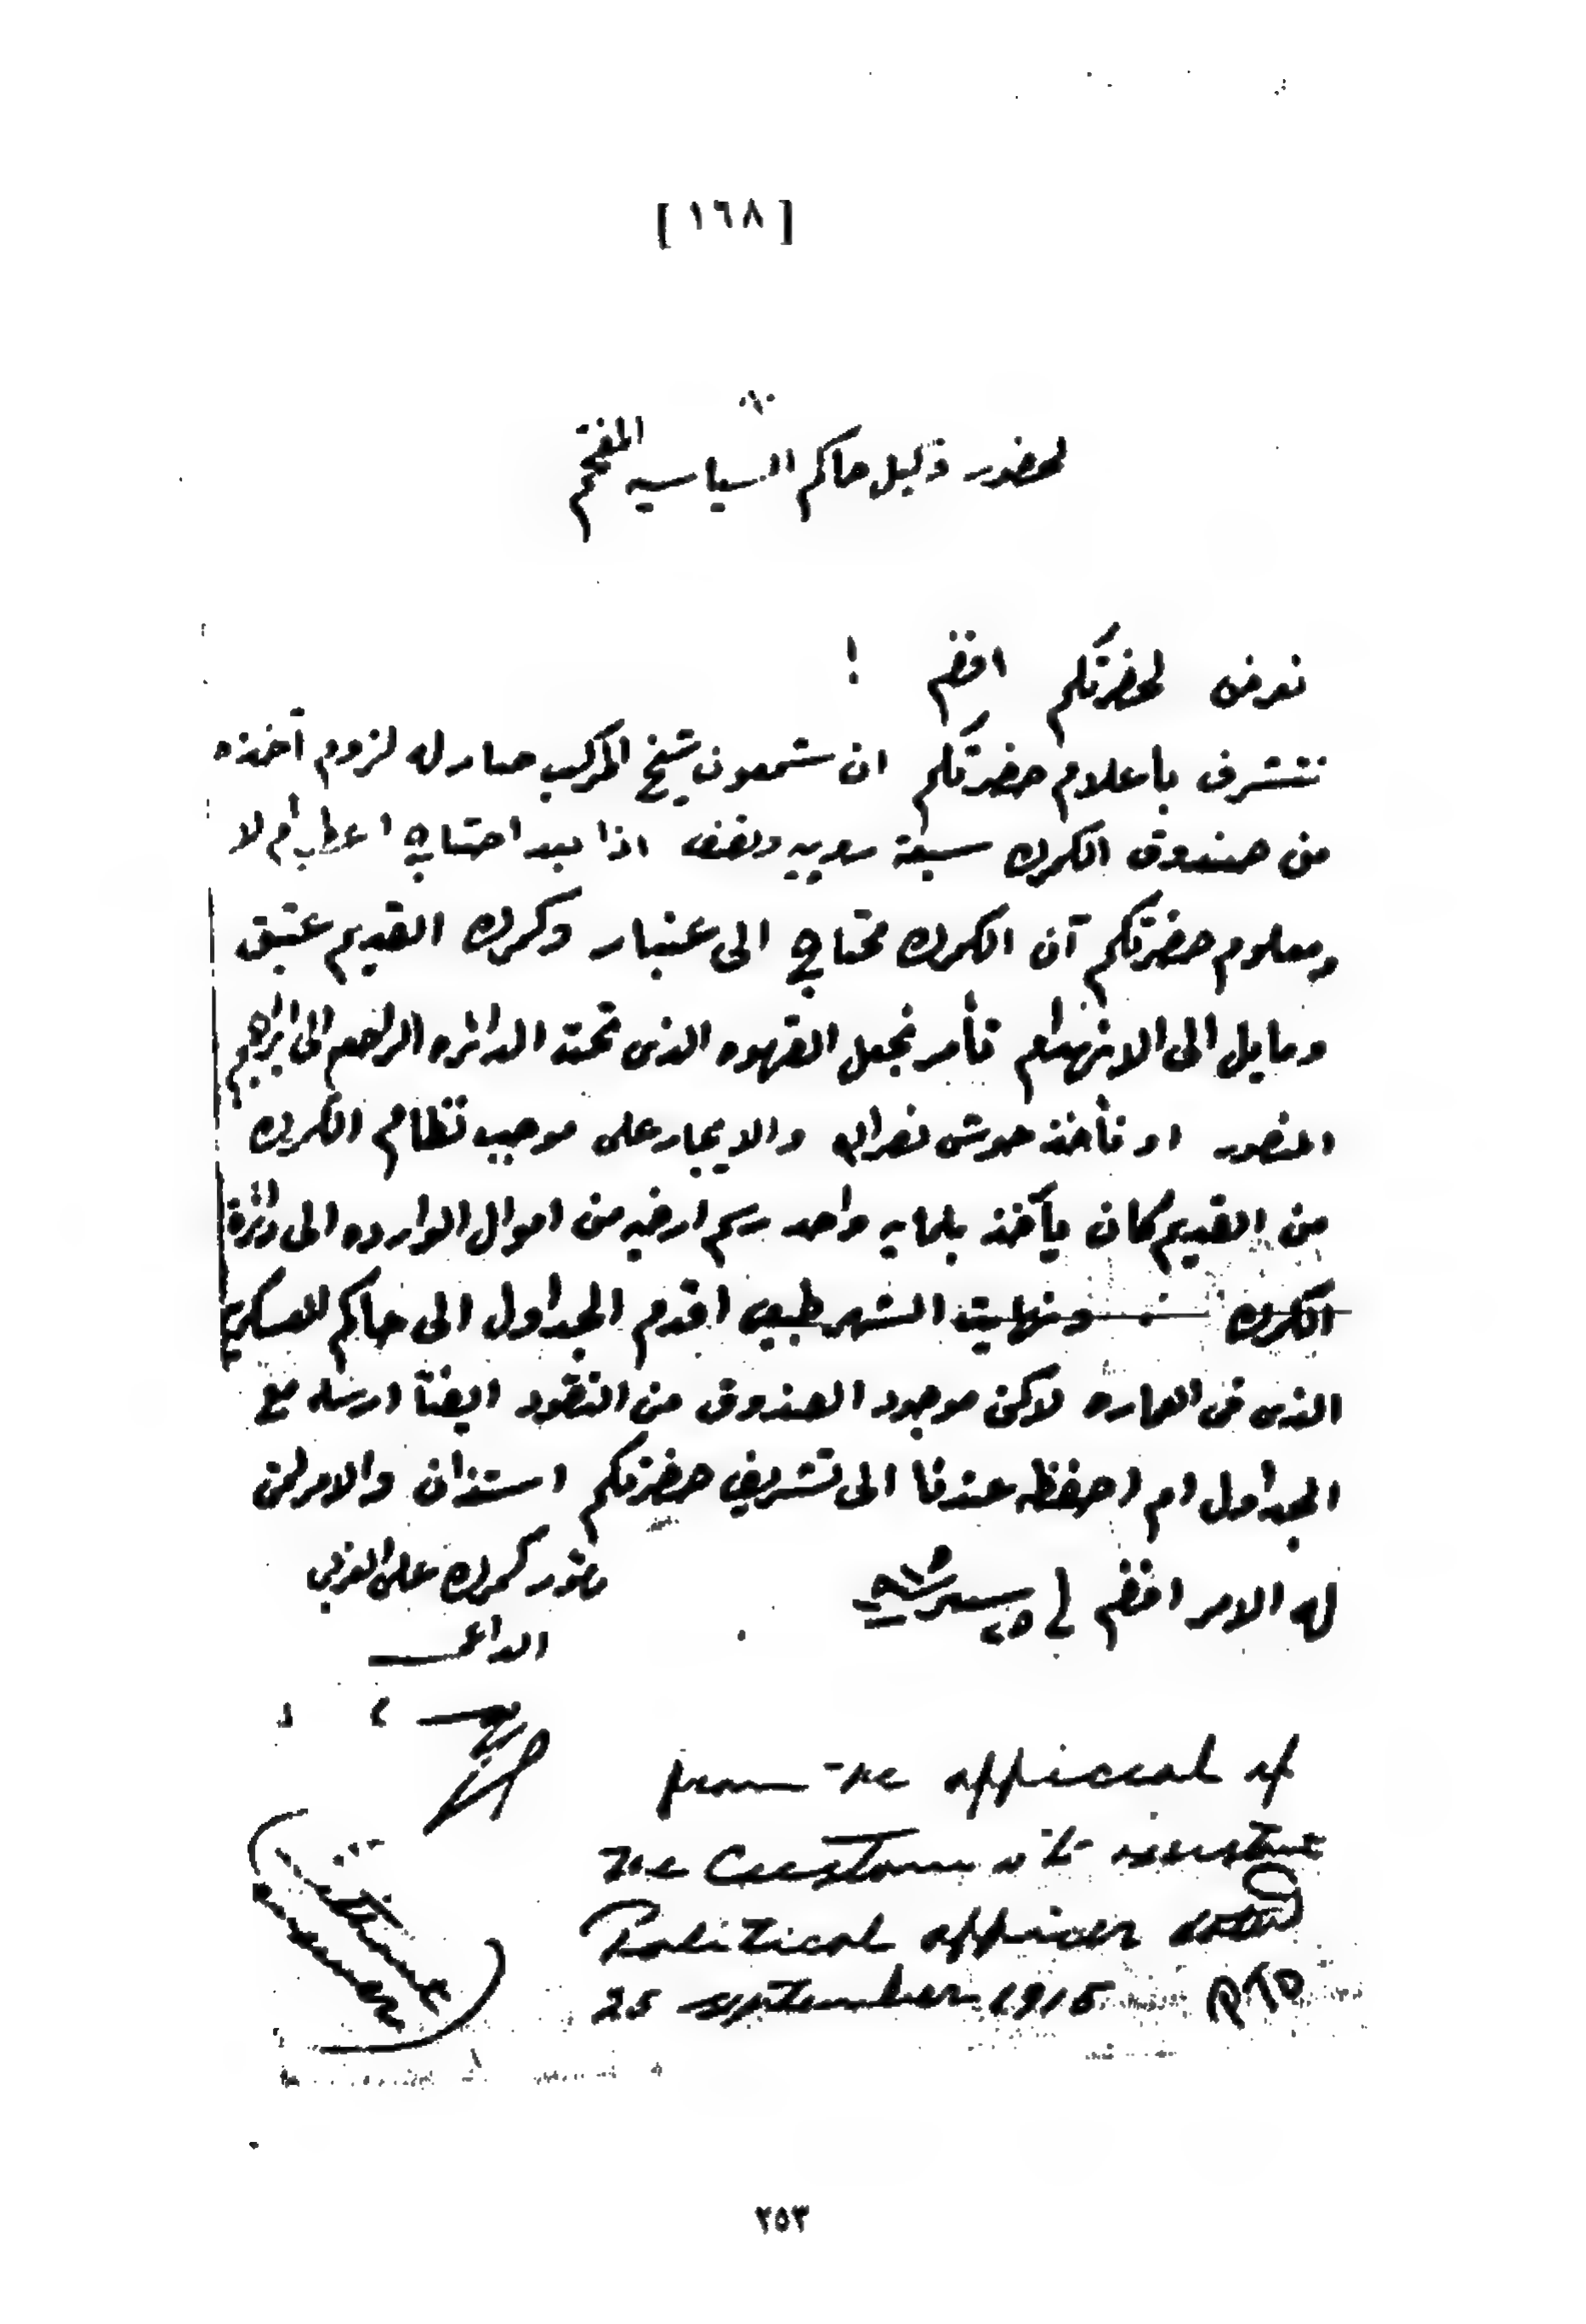 [ ١٦٨ ]
لحضور وكيل حاكم السياسيه المفخم
نعرض لحضرتكم افندم !
نتشرف بأعلام حضرتكم ان شمعون شيخ المركب صار له لزوم آخذه
من صندوق الكمرك سبعة روبيه ونصف اذا بعد احتاج اعطيه أم لا
ومعلوم حضرتكم آن الكمرك محتاج الى عنبار وكمرك القديم عتيق
ومايل الى الانهدام تأمر نجعل القهوه الذى تحت الدائره الراجعه الى ابراهيم
المنصور او نأخذ حوش نصرالله والايجار على موجب نظام الكمرك
من القديم كان يأخذ بلمايه واحد رسم ارضيه من اموال الوارده الى دائرة
الكمرك ونهايت الشهر طبعى اقدم الجداول الى حاكم العسكرى
الذى فى العماره لاكن موجود الصندوق من النقود ايضاً ارسله مع
الجداول ام احفظه عندنا الى تشريف حضرتكم استذان والامر لمن
له الامر افندم فى ٢٥
مأمور كمرك على الغربى
الداعى
from the official of
the Customs to
Political officer
25 september 1915 PTO
٢٥٣